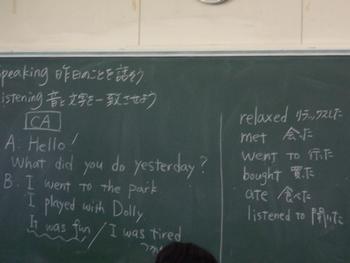 speaking 昨日のことを話そう
Listening 音と文字を一致させよう
CA
A: Hello!
What did you do yesterday?
B: I went to the park
I played with Dolly
It was fun / I was tired
relaxed リラックスした
met 会った
went to 行った
bought 買った
ate 食べた
listened to 聞いた